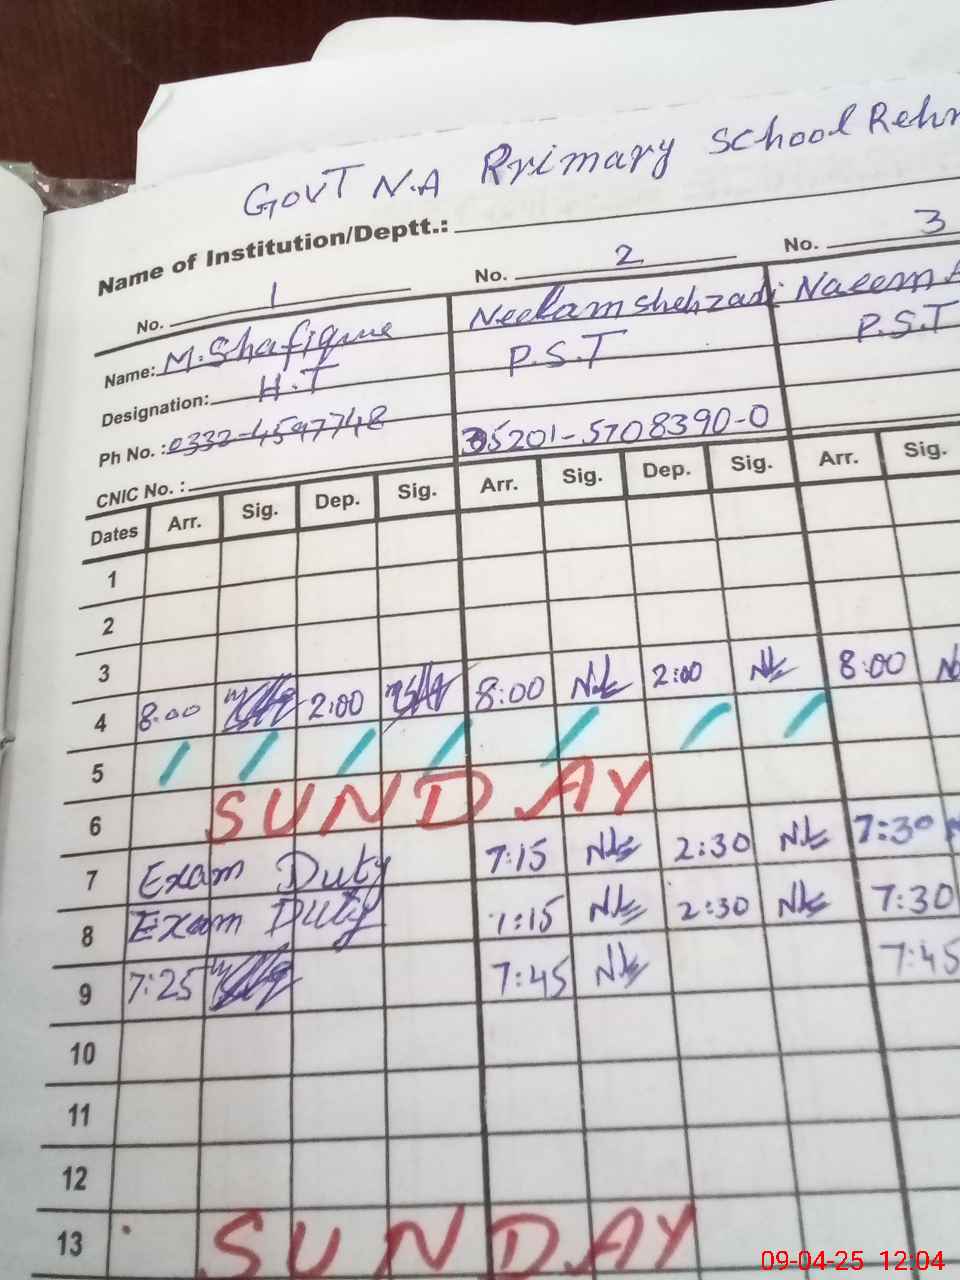 GOVT N.A Primary School Rehm
Name of Institution/Deptt.:
No. 1 No. 2 No. 3
Name: M. Shafique Neelam Shehzadi Naeem A
Designation: H.T P.S.T P.S.T
Ph No. : 0332-4597748
CNIC No. : 35201-5708390-0
Dates Arr. Sig. Dep. Sig. Arr. Sig. Dep. Sig. Arr. Sig.
1
2
3
4 8:00 2:00 8:00 2:00 8:00
5
6 SUNDAY
7 Exam Duty 7:15 2:30 7:30
8 Exam Duty 7:15 2:30 7:30
9 7:25 7:45 7:45
10
11
12
13 SUNDAY
09-04-25 12:04